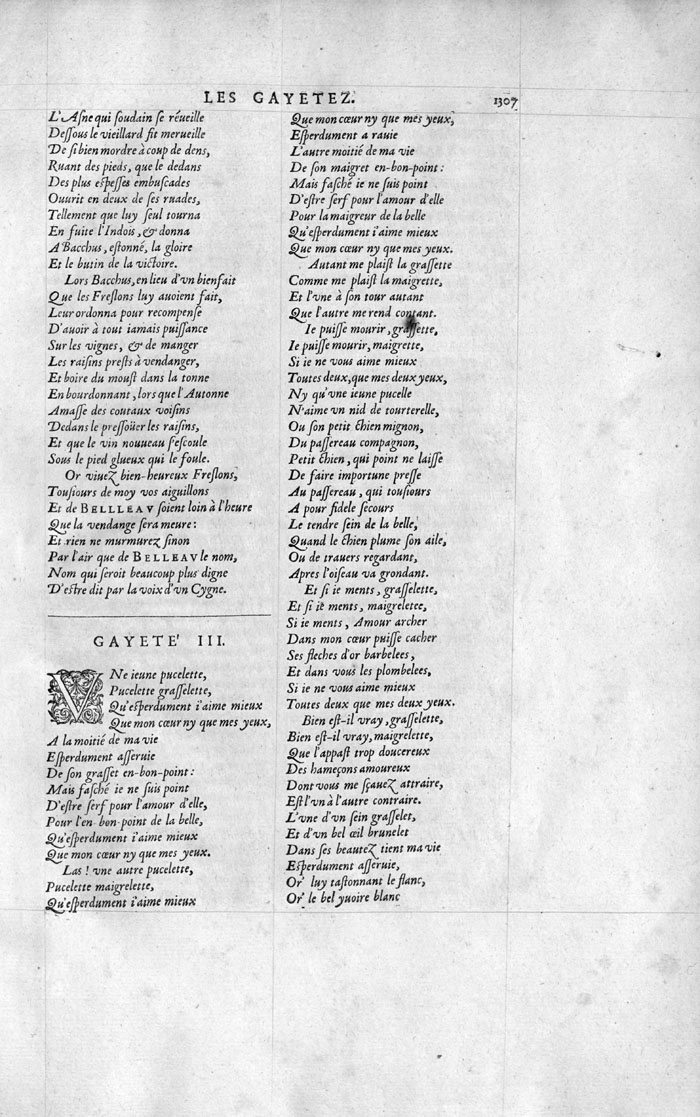 LES GAYETEZ.
1307
L'Asne qui soudain se réueille
Dessous le vieillard fit merueille
De si bien mordre à coup de dens,
Ruant des pieds, que le dedans
Des plus espesses embuscades
Ouurit en deux de ses ruades,
Tellement que luy seul tourna
En fuite l'Indois, & donna
A Bacchus, estonné, la gloire
Et le butin de la victoire.
Lors Bacchus, en lieu d'vn bienfait
Que les Freslons luy auoient fait,
Leur ordonna pour recompense
D'auoir à tout iamais puissance
Sur les vignes, & de manger
Les raisins prests à vendanger,
Et boire du moust dans la tonne
En bourdonnant, lors que l'Autonne
Amasse des coutaux voisins
Dedans le pressoüer les raisins,
Et que le vin nouueau s'escoule
Sous le pied glueux qui le foule.
Or viuez bien-heureux Freslons,
Tousiours de moy vos aiguillons
Et de BELLLEAV soient loin à l'heure
Que la vendange sera meure:
Et rien ne murmurez sinon
Par l'air que de BELLEAV le nom,
Nom qui seroit beaucoup plus digne
D'estre dit par la voix d'vn Cygne.
GAYETE' III.
VNe ieune pucelette,
Pucelette grasselette,
Qu'esperdument i'aime mieux
Que mon cœur ny que mes yeux,
A la moitié de ma vie
Esperdument asseruie
De son grasset en-bon-point:
Mais fasché ie ne suis point
D'estre serf pour l'amour d'elle,
Pour l'en-bon-point de la belle,
Qu'esperdument i'aime mieux
Que mon cœur ny que mes yeux.
Las! vne autre pucelette,
Pucelette maigrelette,
Qu'esperdument i'aime mieux
Que mon cœur ny que mes yeux,
Esperdument a rauie
L'autre moitié de ma vie
De son maigret en-bon-point:
Mais fasché ie ne suis point
D'estre serf pour l'amour d'elle
Pour la maigreur de la belle
Qu'esperdument i'aime mieux
Que mon cœur ny que mes yeux.
Autant me plaist la grassette
Comme me plaist la maigrette,
Et l'vne à son tour autant
Que l'autre me rend contant.
Ie puisse mourir, grassette,
Ie puisse mourir, maigrette,
Si ie ne vous aime mieux
Toutes deux, que mes deux yeux,
Ny qu'vne ieune pucelle
N'aime vn nid de tourterelle,
Ou son petit chien mignon,
Du passereau compagnon,
Petit chien, qui point ne laisse
De faire importune presse
Au passereau, qui tousiours
A pour fidele secours
Le tendre sein de la belle,
Quand le chien plume son aile,
Ou de trauers regardant,
Apres l'oiseau va grondant.
Et si ie ments, grasselette,
Et si ie ments, maigreletee,
Si ie ments, Amour archer
Dans mon cœur puisse cacher
Ses fleches d'or barbelees,
Et dans vous les plombelees,
Si ie ne vous aime mieux
Toutes deux que mes deux yeux.
Bien est-il vray, grasselette,
Bien est-il vray, maigrelette,
Que l'appast trop doucereux
Des hameçons amoureux
Dont vous me sçauez attraire,
Est l'vn à l'autre contraire.
L'vne d'vn sein grasselet,
Et d'vn bel œil brunelet
Dans ses beautez tient ma vie
Esperdument asseruie,
Or' luy tastonnant le flanc,
Or' le bel yuoire blanc